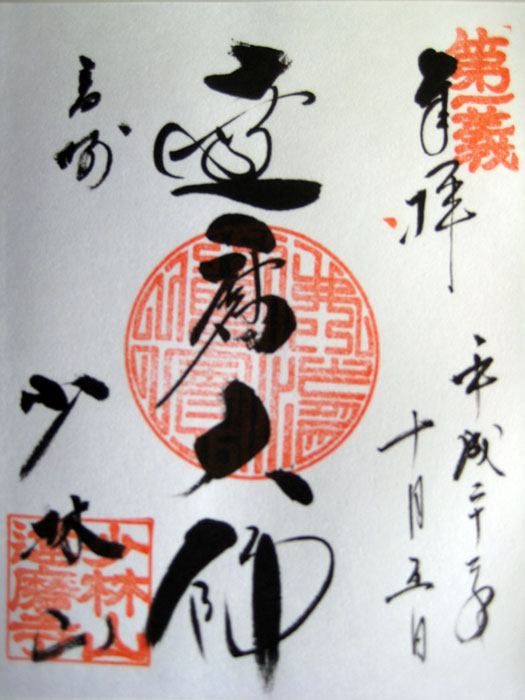 第一義
奉拝
平成二十二年
十月五日
達磨大師
高崎
少林山
少林山
達磨寺